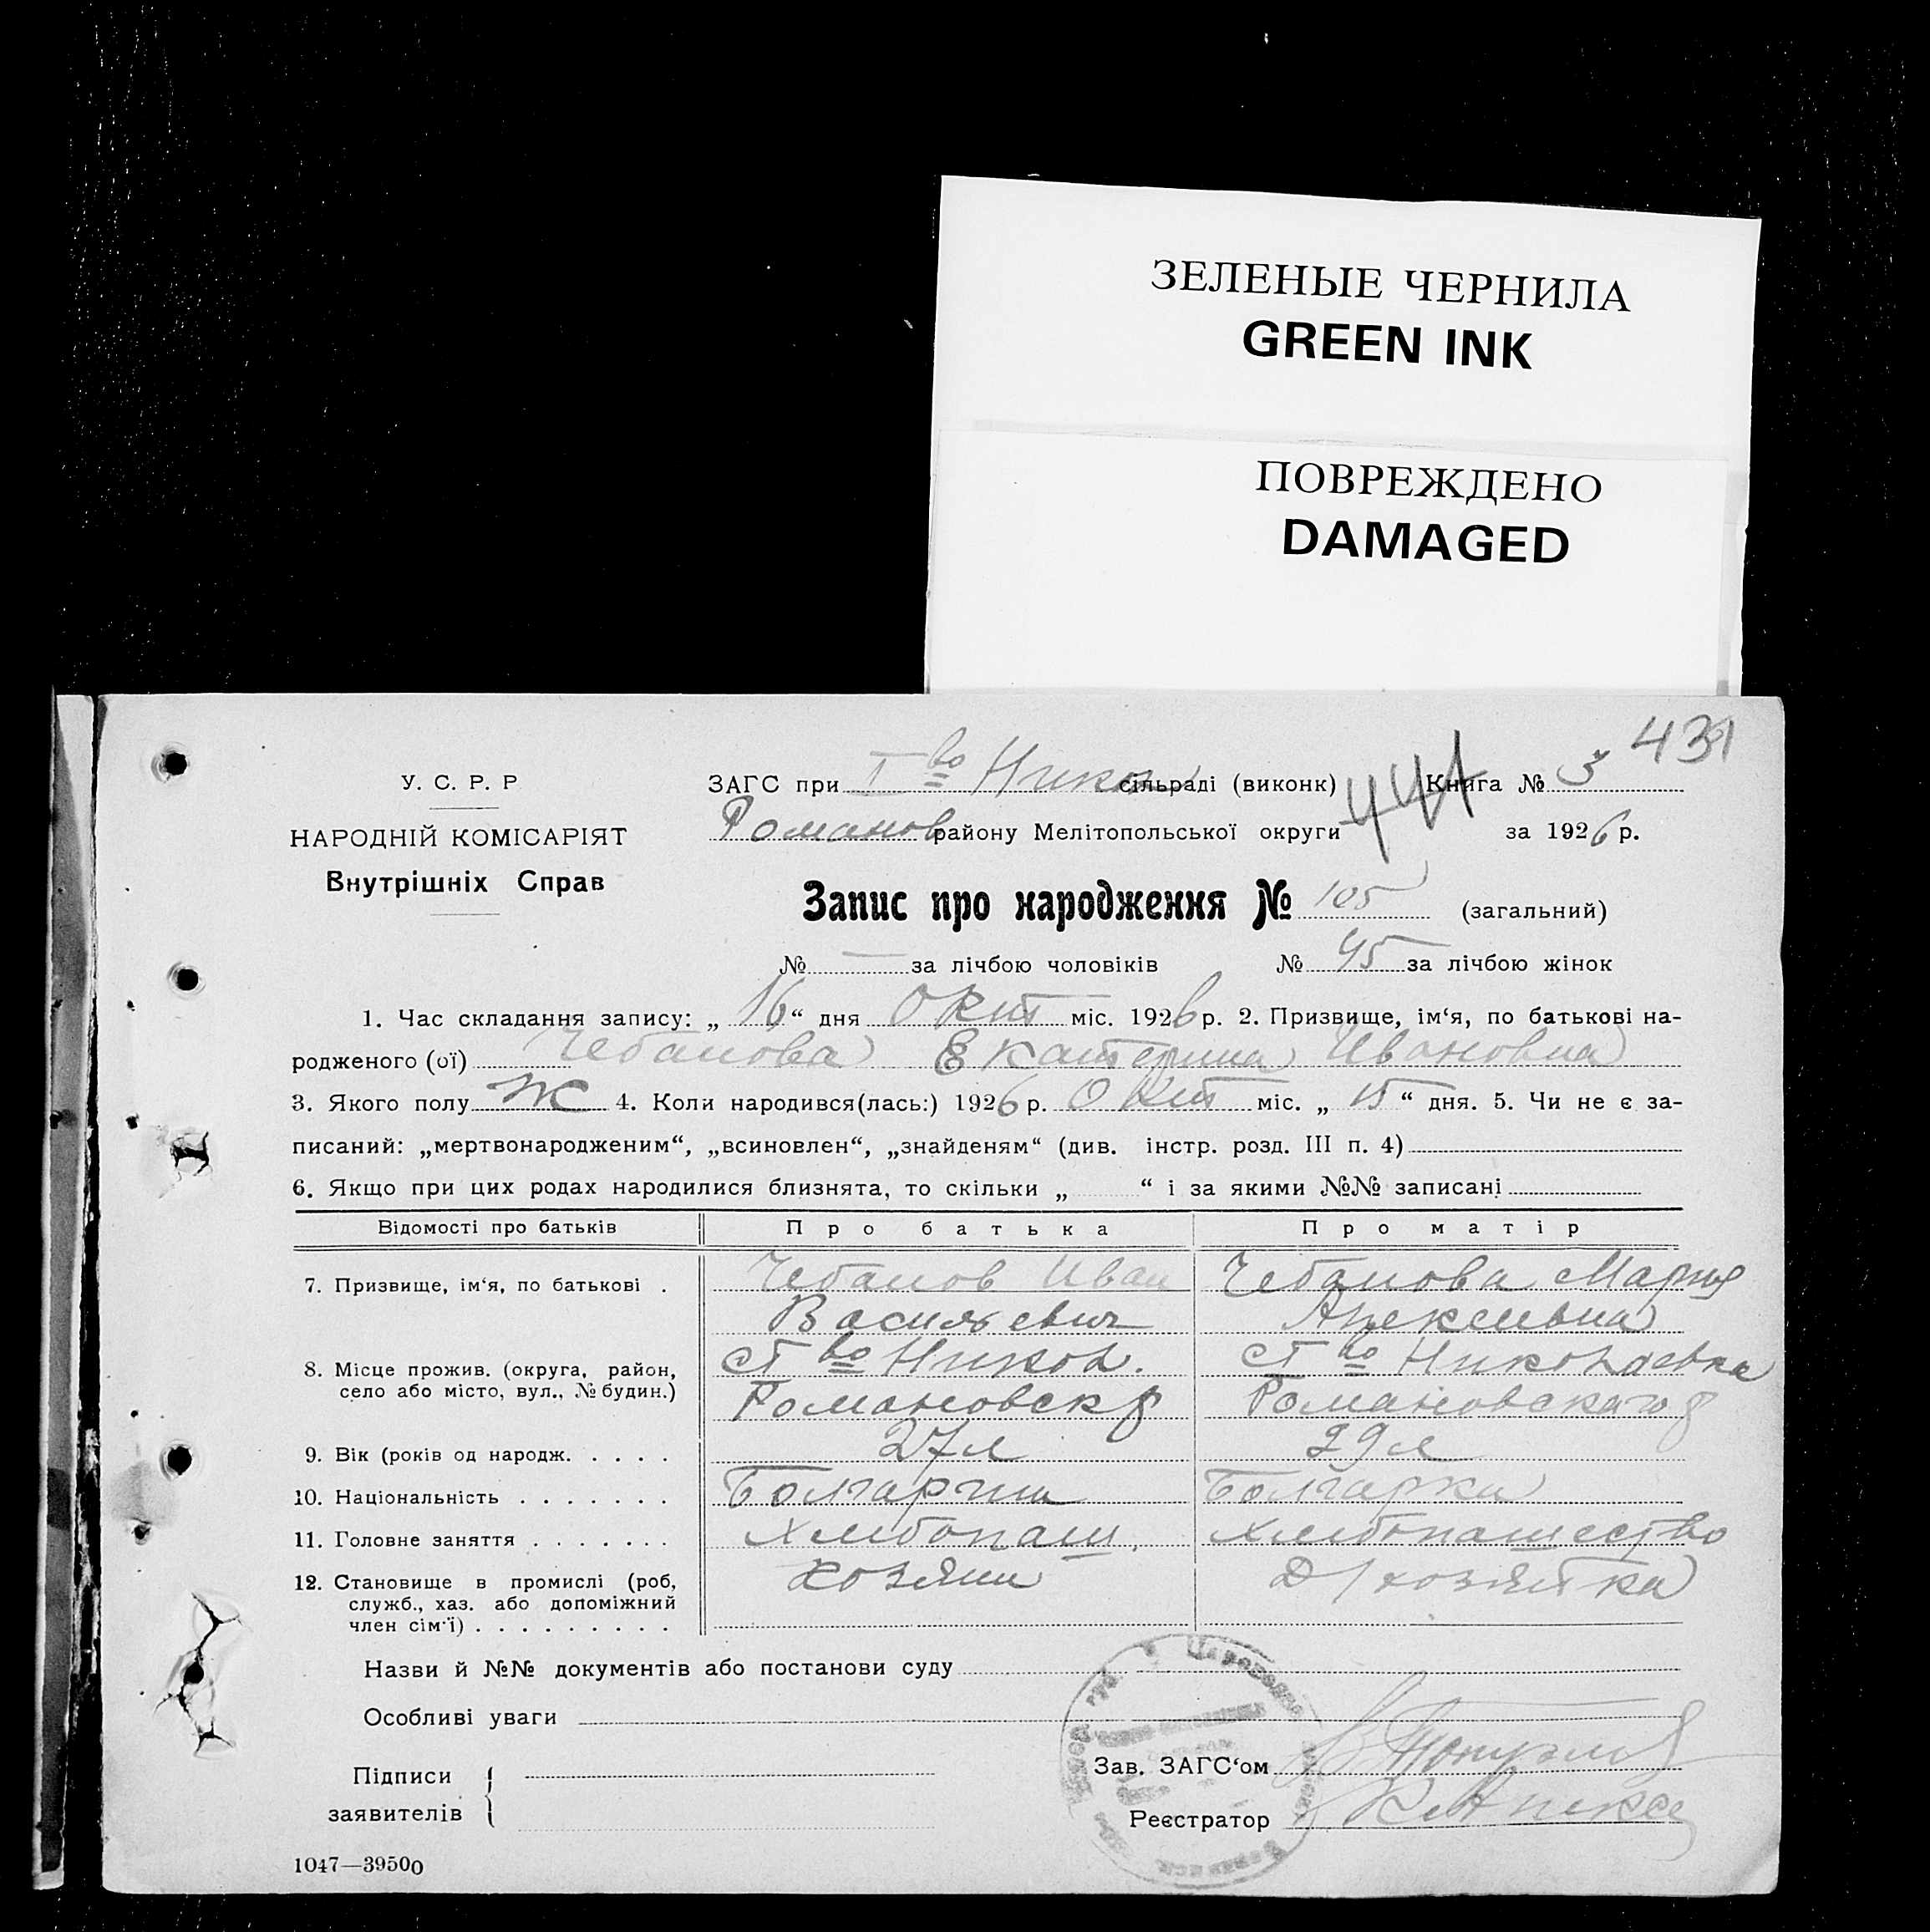 ЗЕЛЕНЫЕ ЧЕРНИЛА
GREEN INK
ПОВРЕЖДЕНО
DAMAGED
431
У. С. Р. Р
НАРОДНІЙ КОМІСАРІЯТ
Внутрішніх Справ
ЗАГС при I во Никол сільраді (виконк) 441 Книга № 3
Романов району Мелітопольської округи за 1926 р.
Запис про народження № 105 (загальний)
№ — за лічбою чоловіків № 45 за лічбою жінок
1. Час складання запису: „ 16 “ дня Окт міс. 1926 р. 2. Призвище, ім‘я, по батькові на-
родженого (ої) Чебанова Екатерина Ивановна
3. Якого полу Ж 4. Коли народився(лась:) 1926 р. Окт міс. „ 15 “ дня. 5. Чи не є за-
писаний: „мертвонародженим“, „всиновлен“, „знайденям“ (див. інстр. розд. III п. 4)
6. Якщо при цих родах народилися близнята, то скільки „ “ і за якими №№ записані
Відомості про батьків Про батька Про матір
7. Призвище, ім‘я, по батькові . Чебанов Иван Чебанова Мария
Васильевич Алексеевна
8. Місце прожив. (округа, район, село або місто, вул., № будин.) во Никол. во Николаевка
Романовск р Романовскаго р
9. Вік (років од народж. . . . . 27 л 29 л
10. Національність . . . . . . . Болгарин Болгарка
11. Головне заняття . . . . . . . Хлебопаш. Хлебопашество
12. Становище в промислі (роб, служб., хаз. або допоміжний член сім‘ї) . . . . . . . . . хозяин Д/хозяйка
Назви й №№ документів або постанови суду
Особливі уваги
Зав. ЗАГС‘ом
Підписи
заявителів
Реєстратор
1047—39500